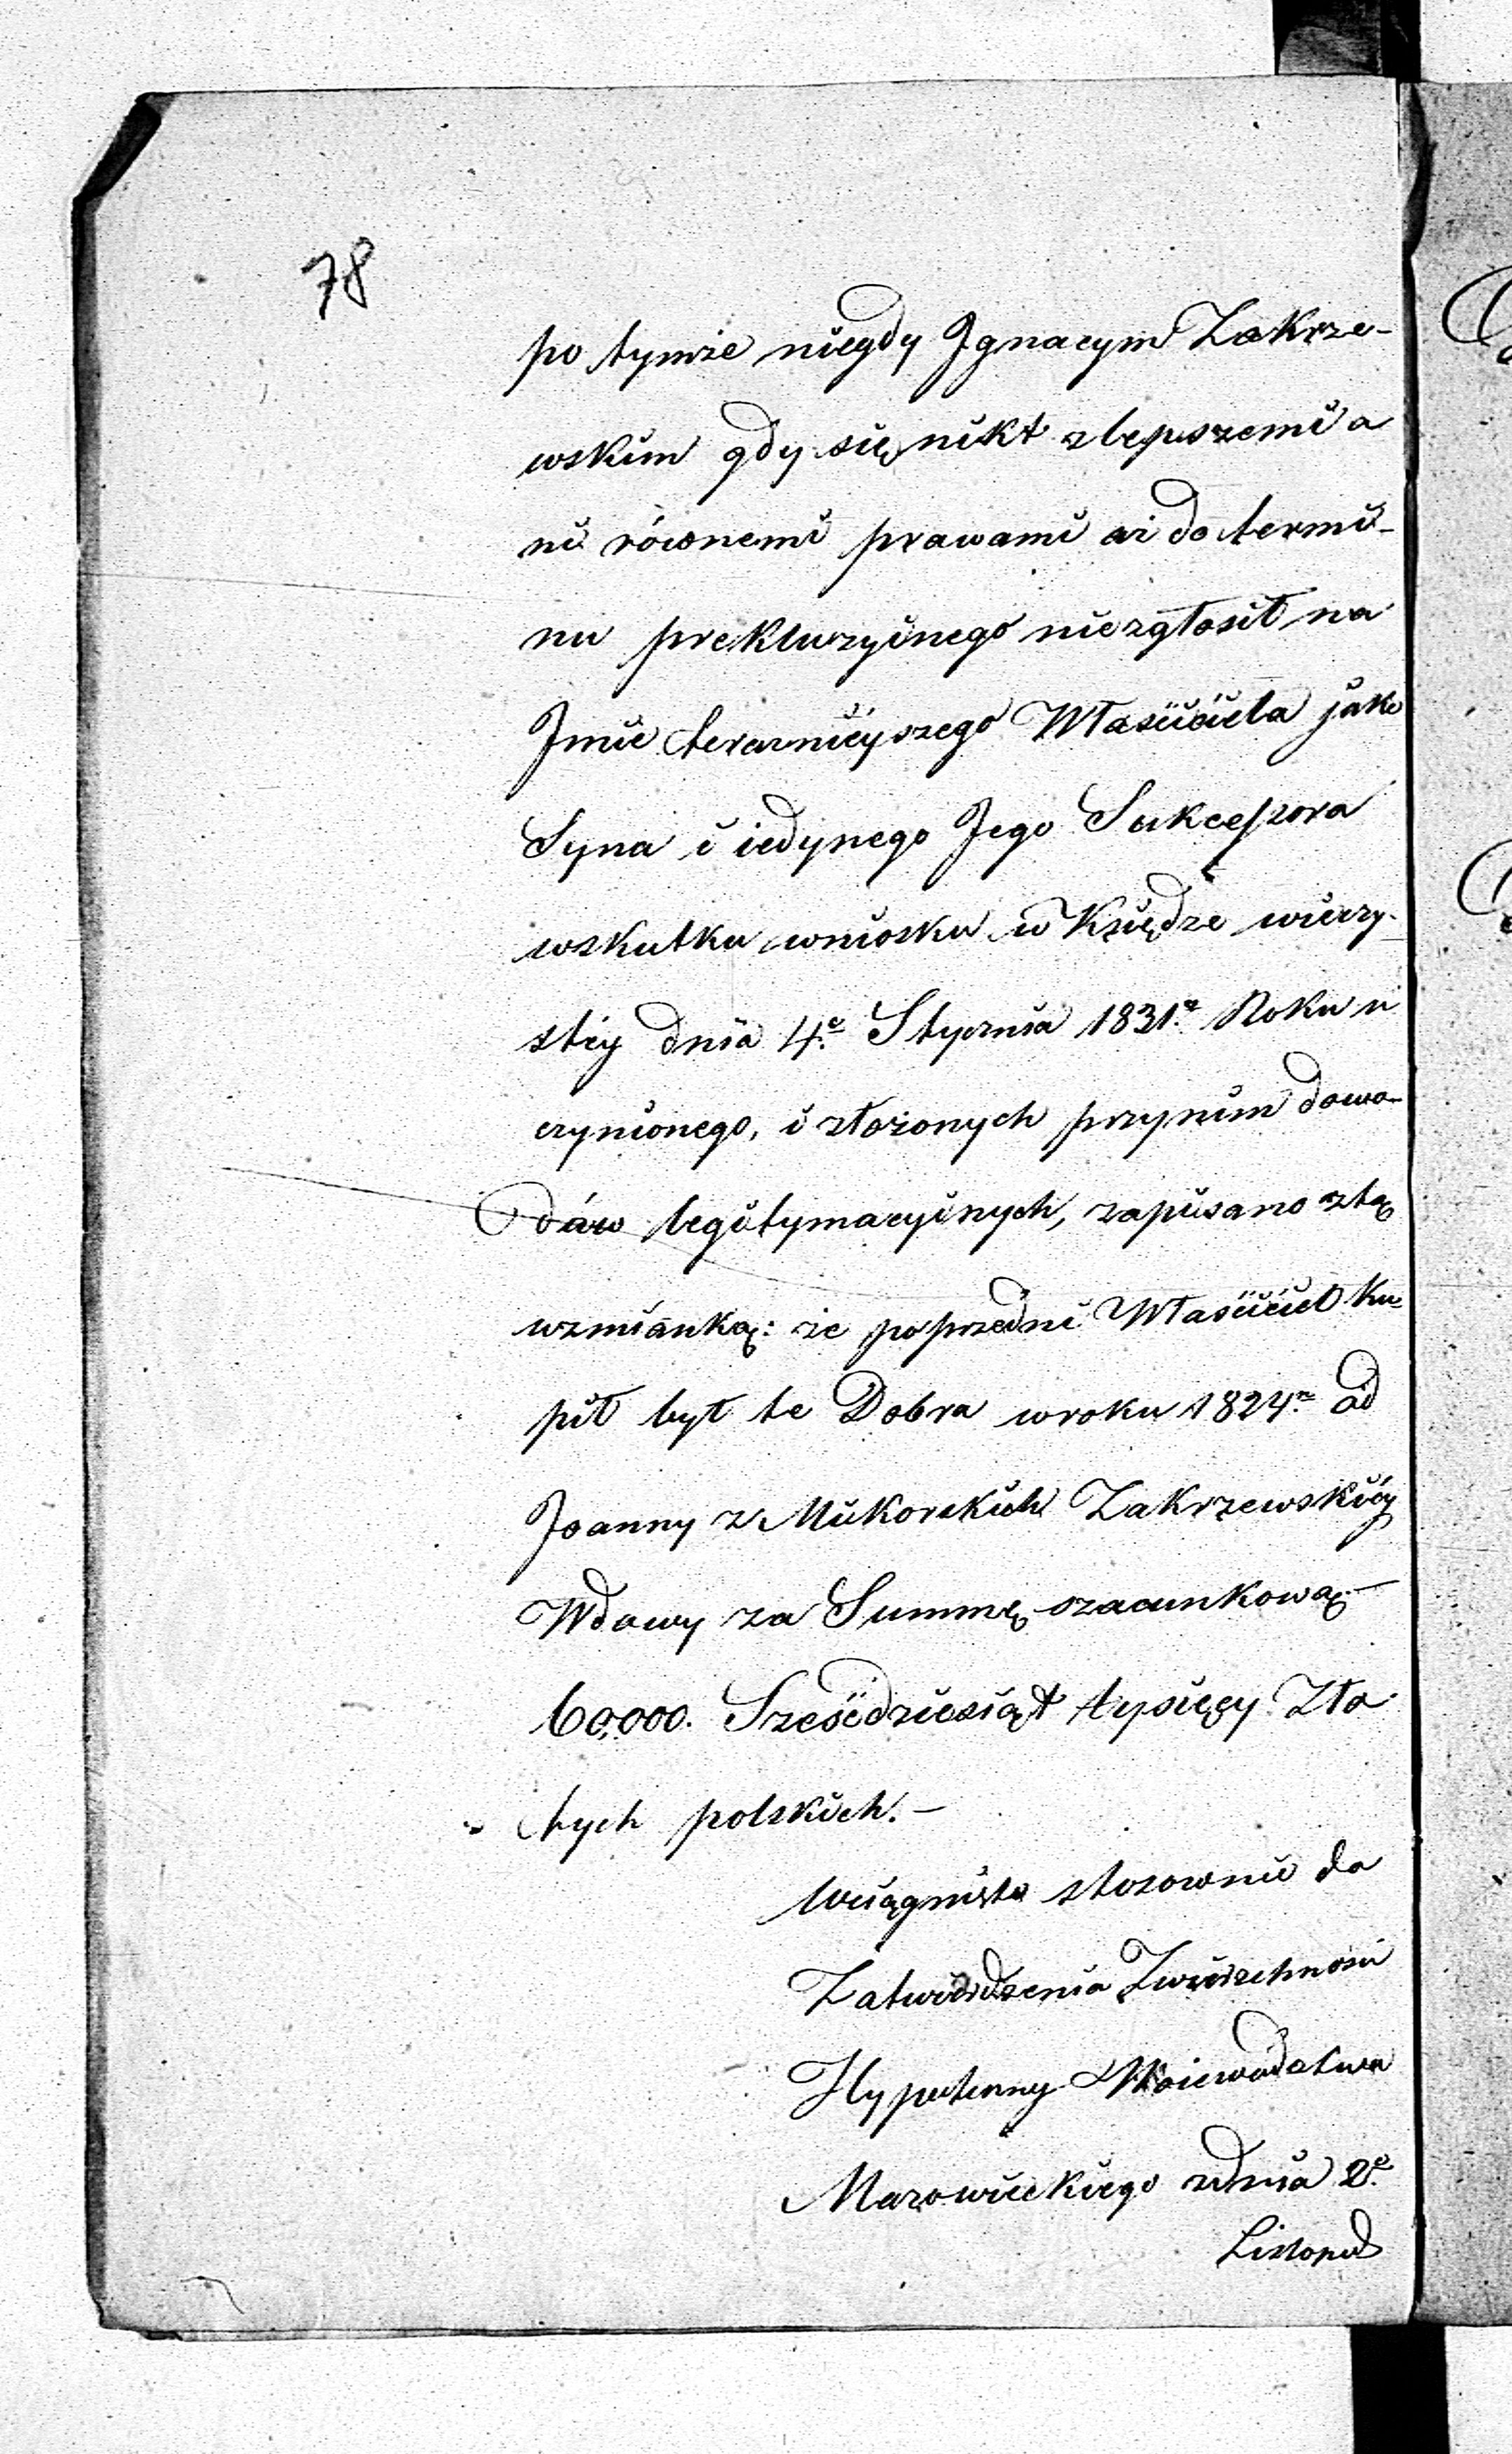 78
po tymże niegdy Ignacym Zakrze-
wskim gdy się nikt zlepszemi a
ni równemi prawami aż do termi-
nu prekluzyinego niezgłosił na
Jmie teraznieyszego Własciciela jako
Syna i iedynego Jego Sukcessora
wskutku wniosku w Księdze wieczy-
stéy dnia 4º Stycznia 1831.º Roku u
czynionego, i złożonych przynim dowo-
dów legitymacyinych, zapisano ztą
wzmianką: że poprzedni Własciciel ku-
pił był te Dobra wroku 1824.m od
Joanny z Mikorskich Zakrzewskiéy
Wdowy za Summę szacunkową —
60,000. Sześćdziesiąt tysięcy Zło
tych polskich. —
Wciągnięto stosownie do
Zatwierdzenia Zwierzchnosci
Hypoteczny Woiewództwa
Mazowieckiego zdnia 2º
Listopad